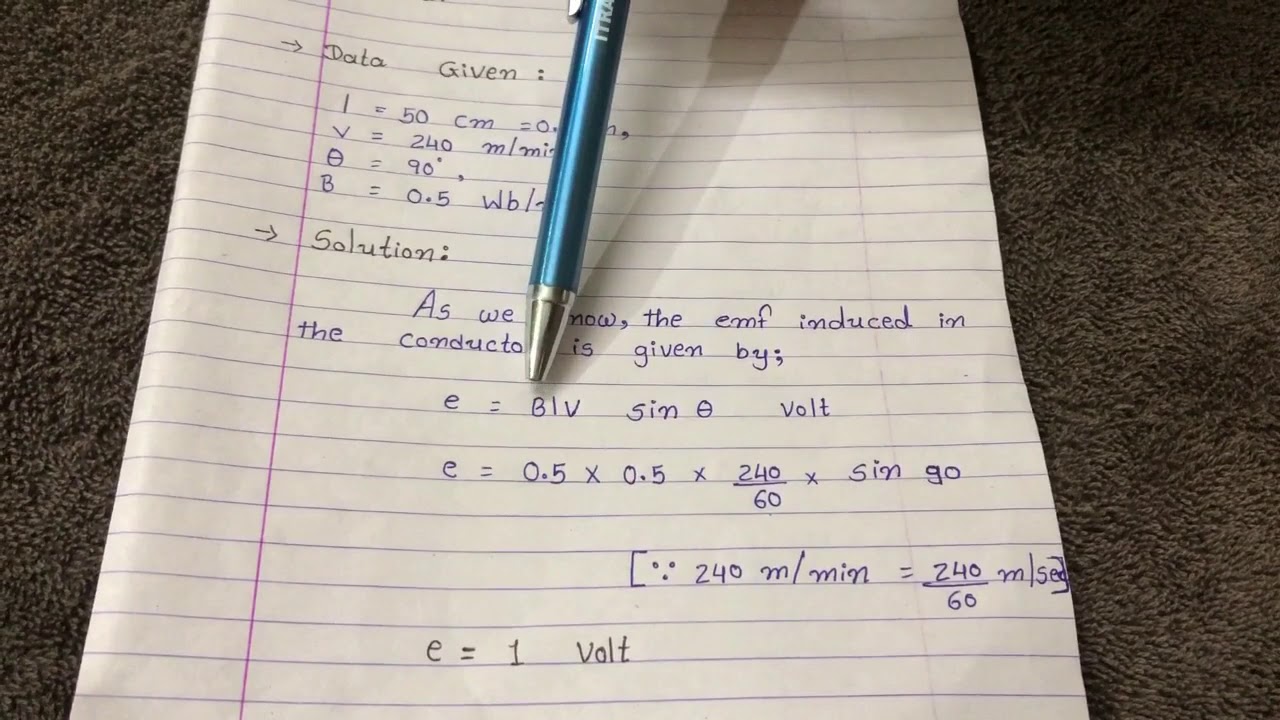 ITRA
→ Data Given :
l = 50 cm = 0.
V = 240 m/min
θ = 90°,
B = 0.5 Wb/
→ Solution:
As we now, the emf induced in
the conducto is given by;
e = BlV sin θ volt
e = 0.5 × 0.5 × 240/60 × sin 90
[∵ 240 m/min = 240/60 m/sec]
e = 1 volt